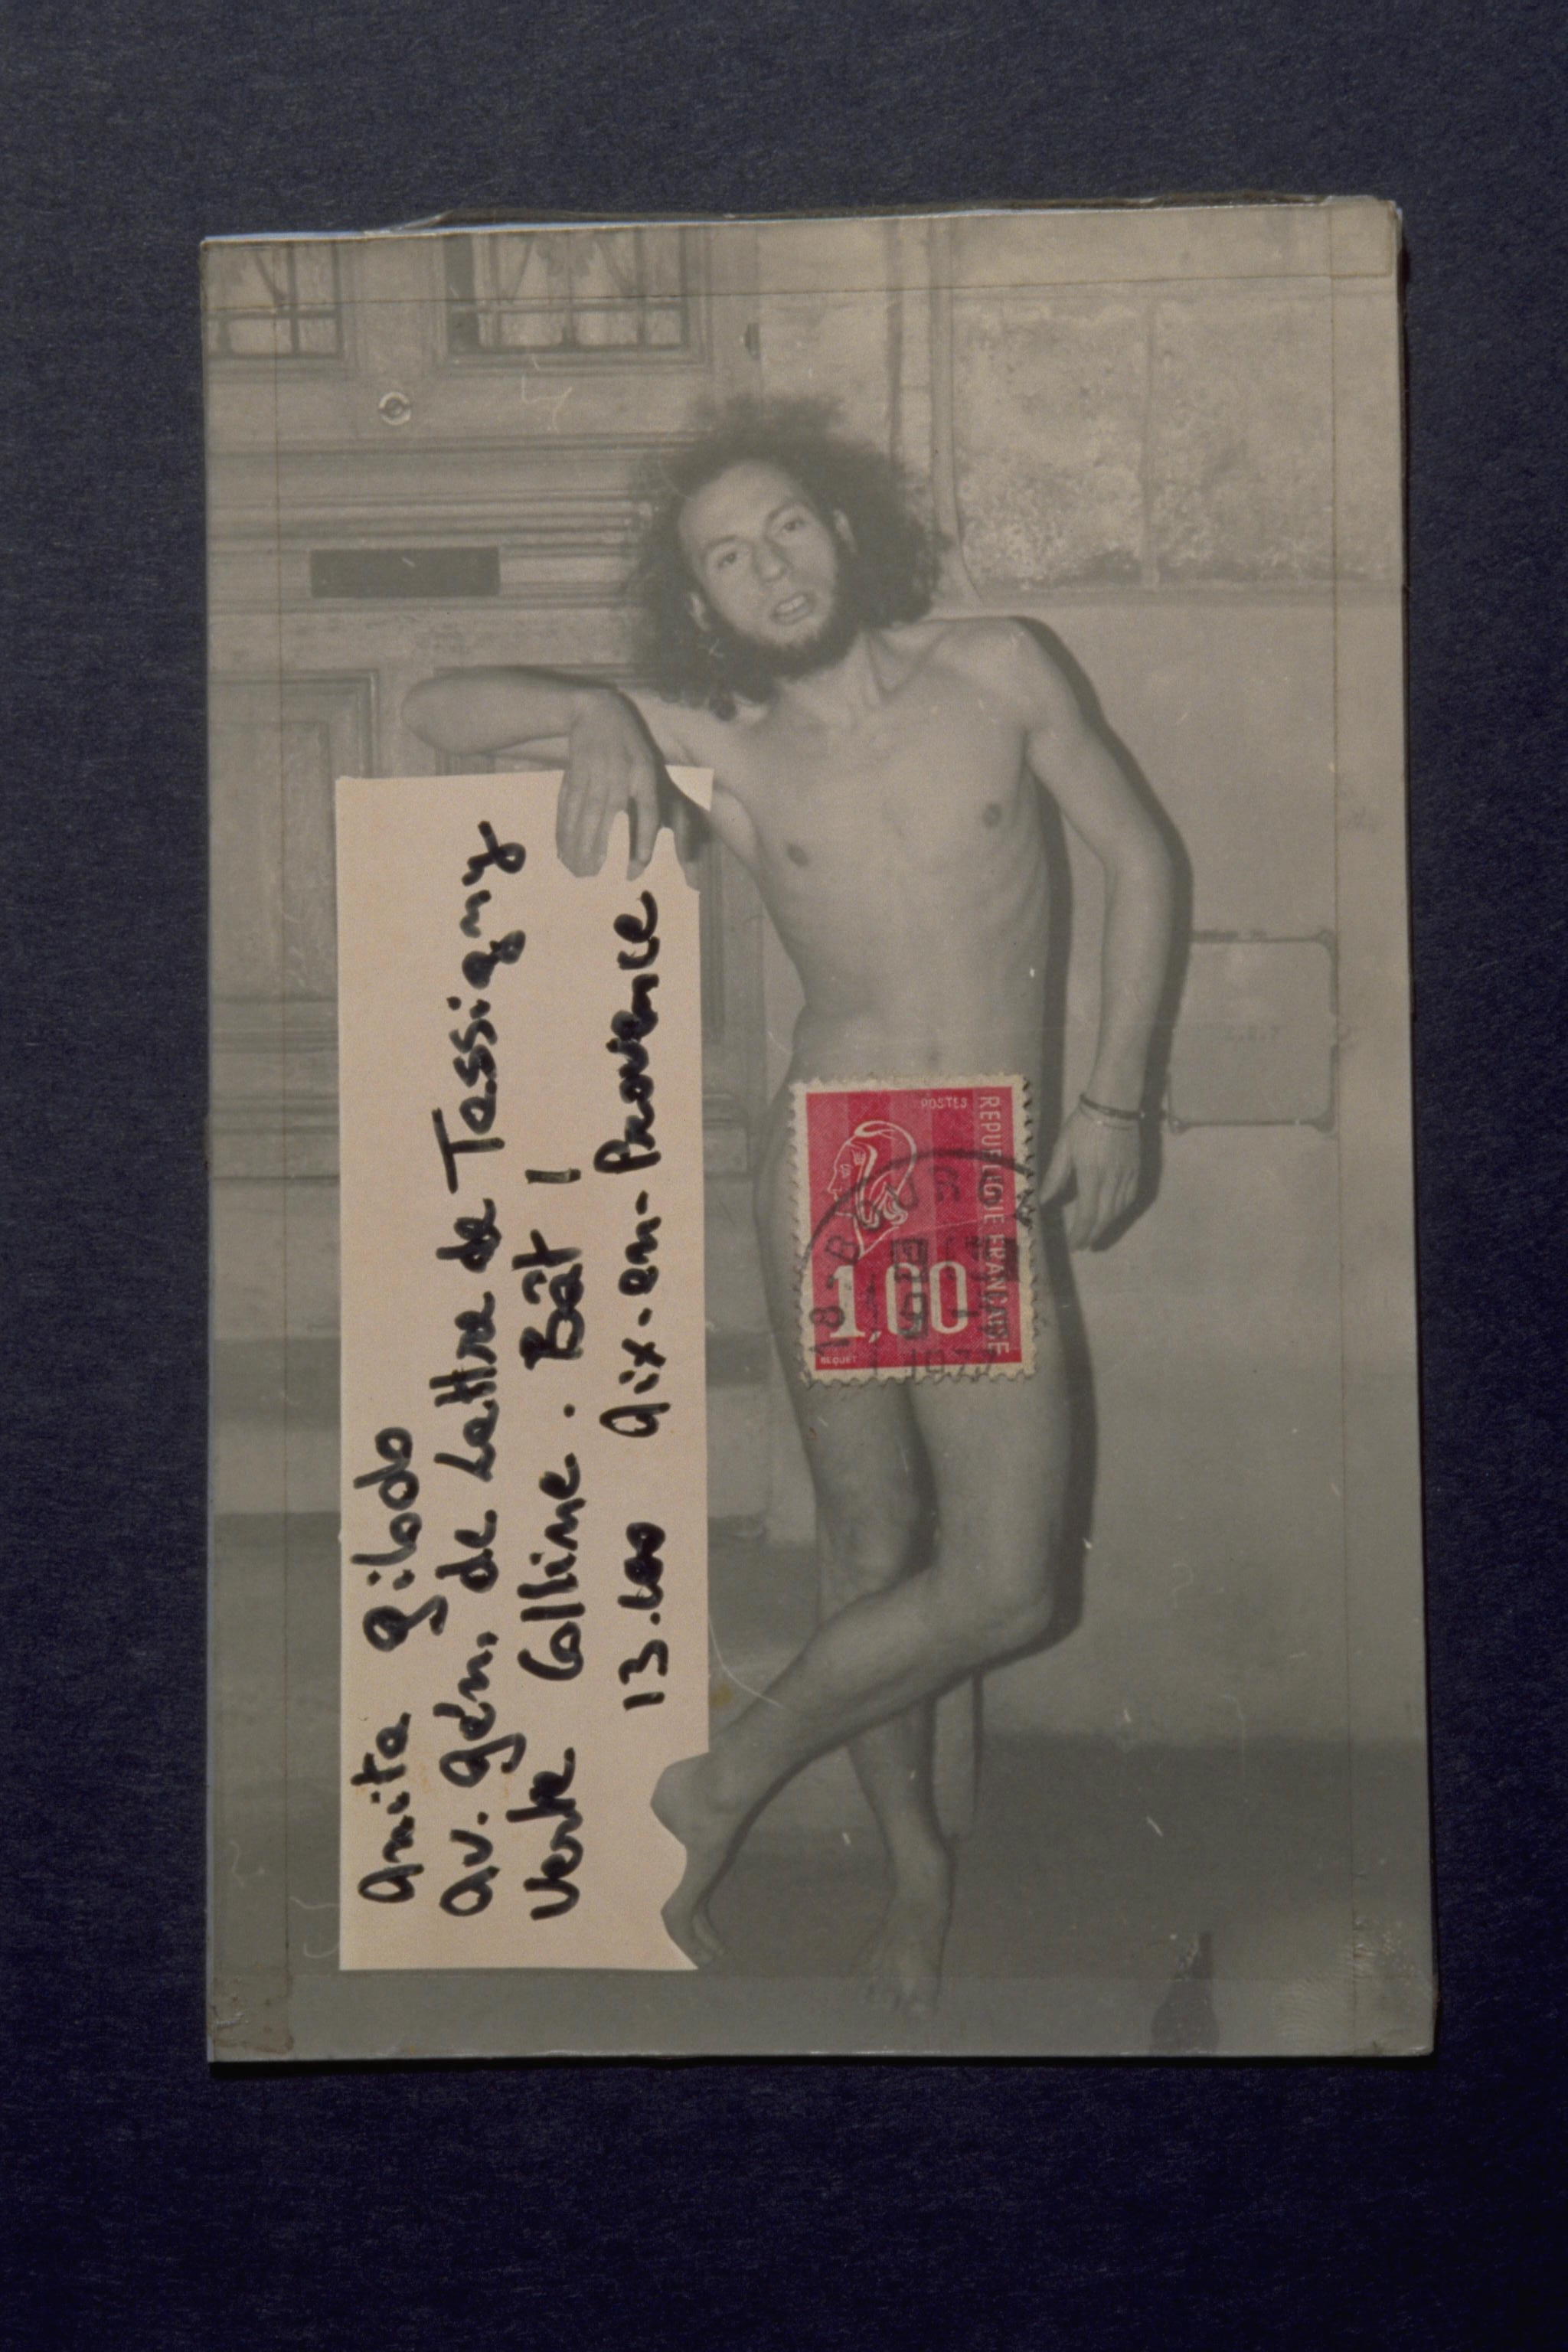 Anita Gilodo
Av. Gén. de Lattre de Tassigny
Verte Colline. Bât 1
13.100 Aix-en-Provence
POSTES
REPUBLIQUE FRANÇAISE
1,00
BEQUET
18 BOURGES